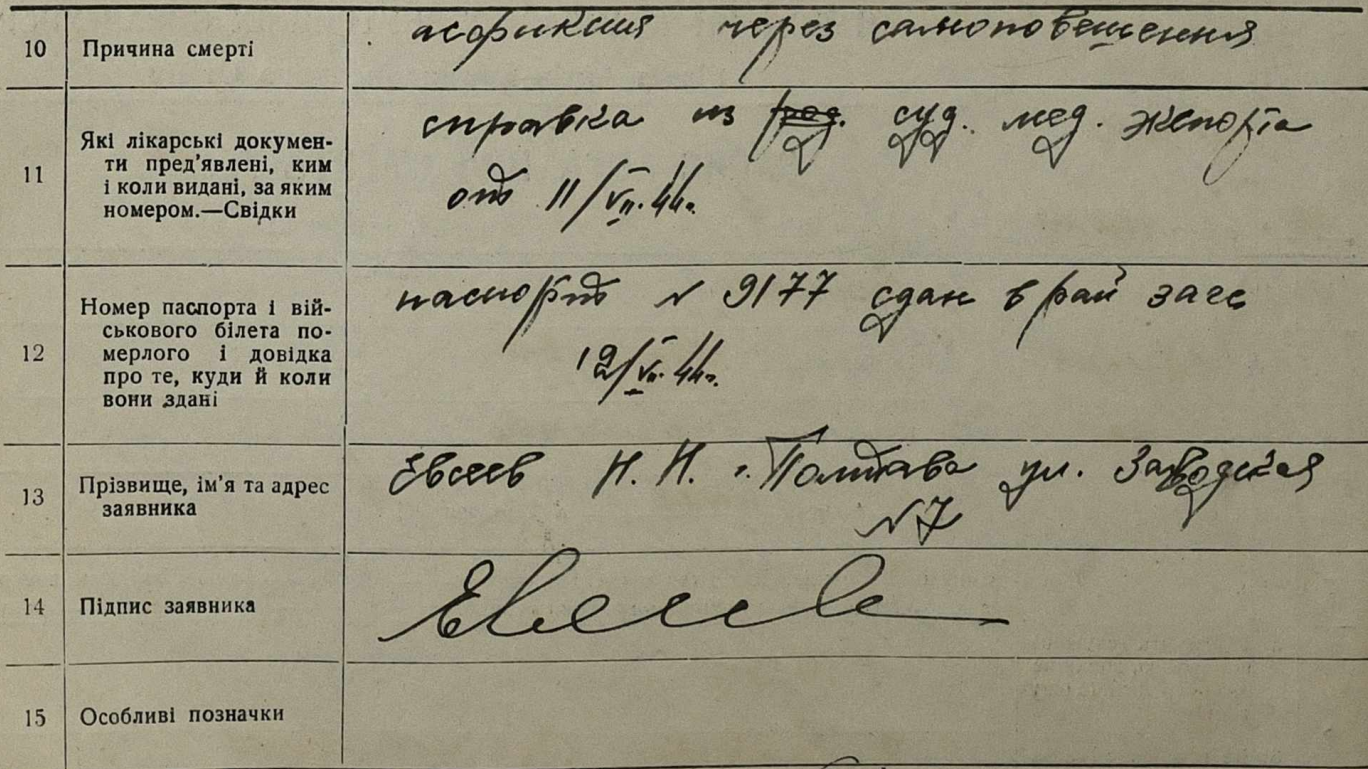 10 Причина смерті асфиксия через самоповешення
11 Які лікарські докумен-
ти пред’явлені, ким
і коли видані, за яким
номером.—Свідки
справка из суд. мед. экспорта
от 11/VII.44г.
12 Номер паспорта і вій-
ськового білета по-
мерлого і довідка
про те, куди й коли
вони здані
паспорт № 9177 сдан в рай загс
12/VII.44г.
13 Прізвище, ім’я та адрес
заявника
Евсеев Н. Н. г. Полтава ул. Заводская
№7
14 Підпис заявника Евсеев
15 Особливі позначки